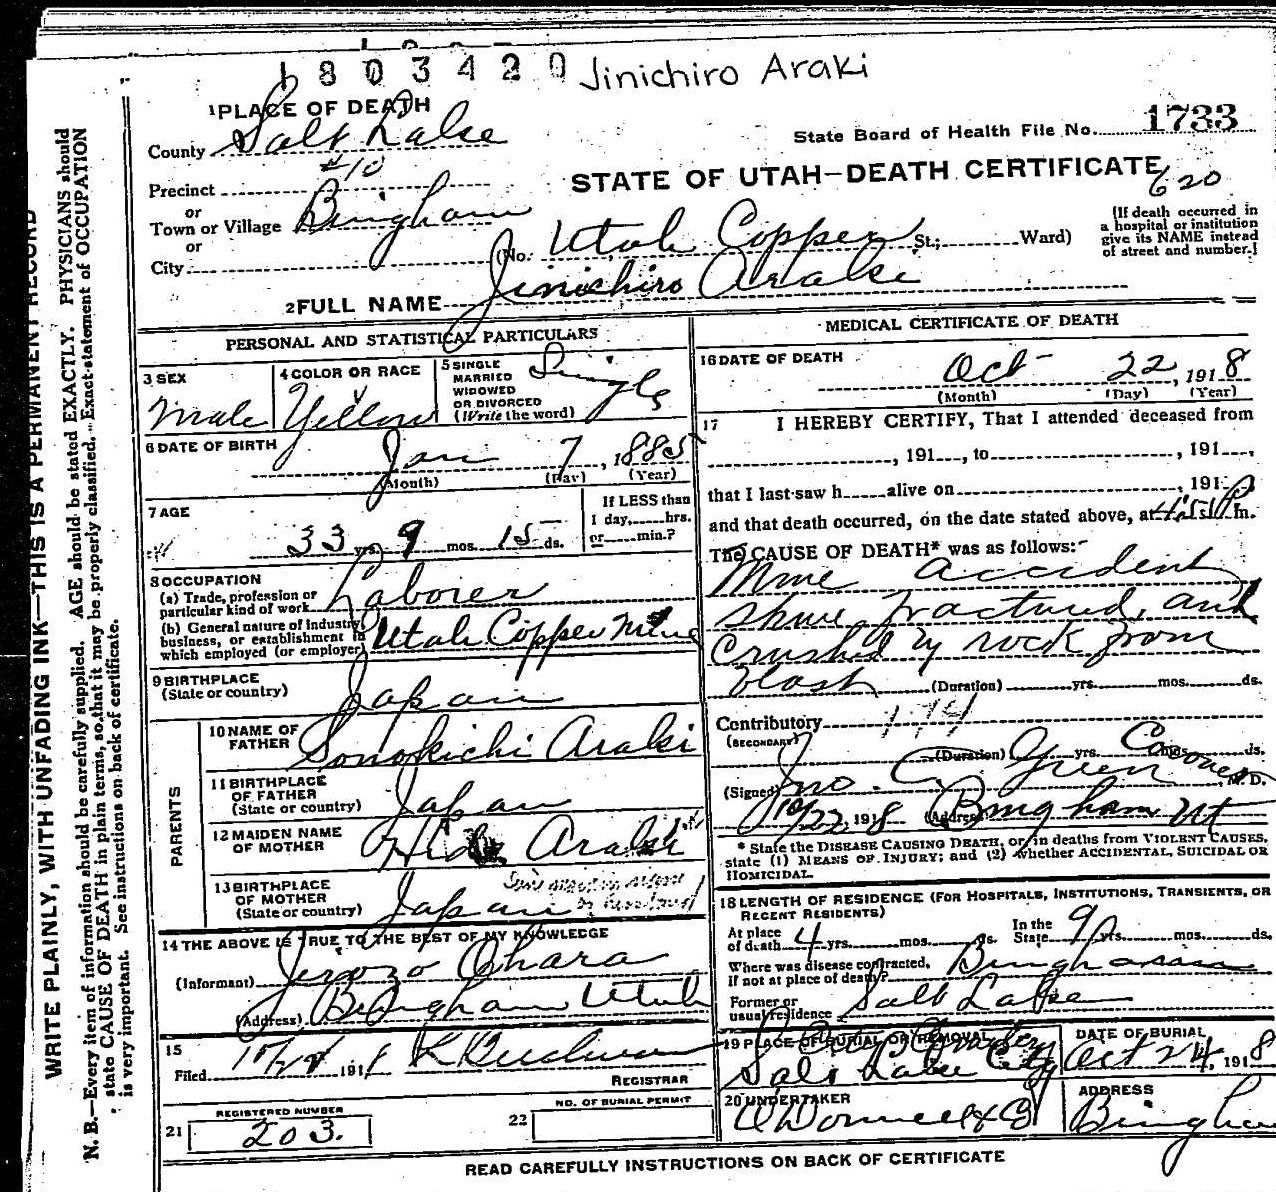 1803420 Jinichiro Araki
1 PLACE OF DEATH
County Salt Lake
State Board of Health File No. 1733
Precinct #10
STATE OF UTAH—DEATH CERTIFICATE
620
or
Town or Village Bingham
or
City
(No. Utah Copper St.; Ward)
(If death occurred in a hospital or institution give its NAME instead of street and number.)
2 FULL NAME Jinichiro Araki
PERSONAL AND STATISTICAL PARTICULARS
3 SEX Male
4 COLOR OR RACE Yellow
5 SINGLE MARRIED WIDOWED OR DIVORCED (Write the word) Single
6 DATE OF BIRTH Jan 7, 1885
(Month) (Day) (Year)
7 AGE 33 yrs. 9 mos. 15 ds.
If LESS than 1 day, hrs. or min.?
8 OCCUPATION
(a) Trade, profession or particular kind of work Laborer
(b) General nature of industry, business, or establishment in which employed (or employer) Utah Copper Mine
9 BIRTHPLACE (State or country) Japan
PARENTS
10 NAME OF FATHER Sonokichi Araki
11 BIRTHPLACE OF FATHER (State or country) Japan
12 MAIDEN NAME OF MOTHER Araki
13 BIRTHPLACE OF MOTHER (State or country) Japan
14 THE ABOVE IS TRUE TO THE BEST OF MY KNOWLEDGE
(Informant) Ohara
(Address) Bingham Utah
15
Filed 191
REGISTRAR
REGISTERED NUMBER
21 203.
NO. OF BURIAL PERMIT
22
MEDICAL CERTIFICATE OF DEATH
16 DATE OF DEATH Oct 22, 1918
(Month) (Day) (Year)
17 I HEREBY CERTIFY, That I attended deceased from
, 191 , to , 191 ,
that I last saw h alive on , 191
and that death occurred, on the date stated above, at m.
The CAUSE OF DEATH* was as follows:
Mine accident
fractured, and
crushed by rock from
blast (Duration) yrs. mos. ds.
Contributory 174
(SECONDARY)
(Duration) yrs. mos. ds.
(Signed) Jno. C. Green Coroner M. D.
10/22, 1918 (Address) Bingham Ut
* State the DISEASE CAUSING DEATH, or, in deaths from VIOLENT CAUSES, state (1) MEANS OF INJURY; and (2) whether ACCIDENTAL, SUICIDAL OR HOMICIDAL.
18 LENGTH OF RESIDENCE (FOR HOSPITALS, INSTITUTIONS, TRANSIENTS, OR RECENT RESIDENTS)
At place of death 4 yrs. mos. ds. In the State 9 yrs. mos. ds.
Where was disease contracted, if not at place of death? Bingham
Former or usual residence Salt Lake
19 PLACE OF BURIAL OR REMOVAL
Salt Lake City
DATE OF BURIAL
Oct 24, 1918
20 UNDERTAKER
O'Donnell & Co
ADDRESS
READ CAREFULLY INSTRUCTIONS ON BACK OF CERTIFICATE
WRITE PLAINLY, WITH UNFADING INK—THIS IS A PERMANENT RECORD
N. B.—Every item of information should be carefully supplied. AGE should be stated EXACTLY. PHYSICIANS should
state CAUSE OF DEATH in plain terms, so that it may be properly classified. Exact statement of OCCUPATION
is very important. See instructions on back of certificate.